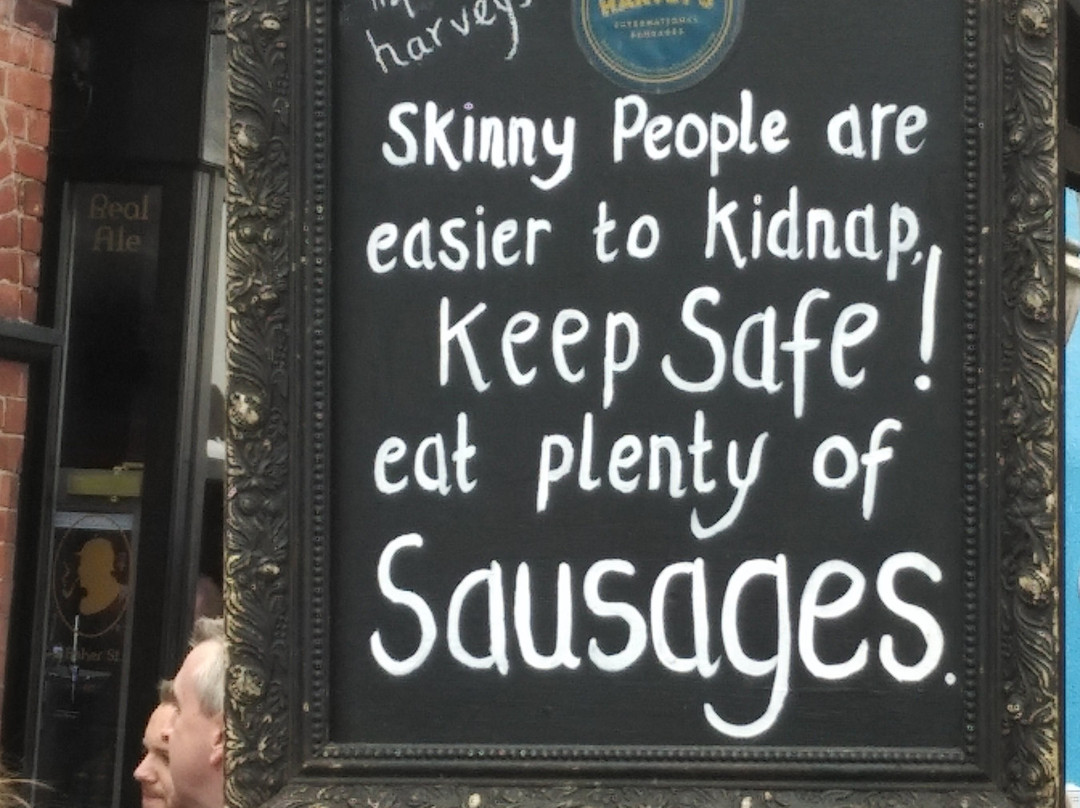 harveys
HARVEY'S
INTERNATIONAL
SAUSAGES
Skinny People are
easier to kidnap,
Keep Safe!
eat plenty of
Sausages.
Real
Ale
Baker St